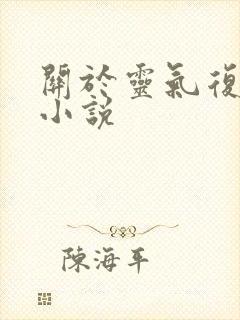 關於靈氣復
小說
陳海平